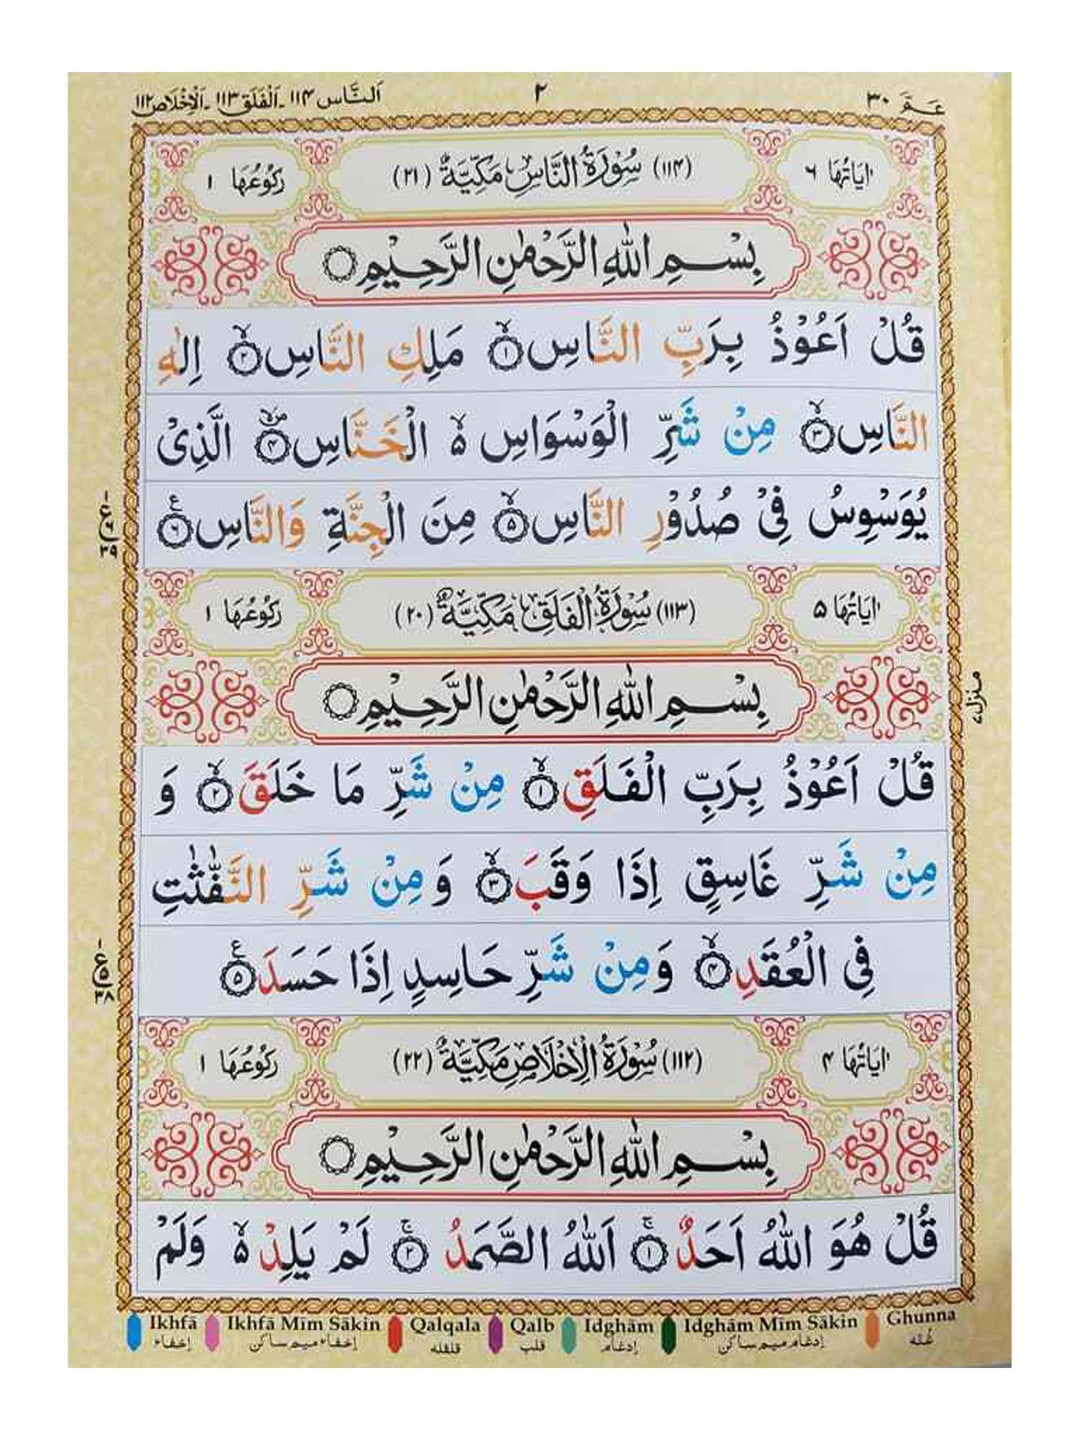 عـمّ ٣٠ ٢ اَلنَّاس ١١٤ ـ اَلْفَلَق ١١٣ ـ اَلْاِخْلَاص ١١٢
اٰيَاتُهَا ٦ (١١٤) سُوْرَةُ النَّاسِ مَكِّيَّةٌ (٢١) رُكُوْعُهَا ١
بِسْمِ اللّٰهِ الرَّحْمٰنِ الرَّحِيْمِ
قُلْ اَعُوْذُ بِرَبِّ النَّاسِ ۙ﴿١﴾ مَلِكِ النَّاسِ ۙ﴿٢﴾ اِلٰهِ
النَّاسِ ۙ﴿٣﴾ مِنْ شَرِّ الْوَسْوَاسِ ۬ۙ الْخَنَّاسِ ۪ۙ﴿٤﴾ الَّذِىْ
يُوَسْوِسُ فِىْ صُدُوْرِ النَّاسِ ۙ﴿٥﴾ مِنَ الْجِنَّةِ وَالنَّاسِ ﴿٦﴾ع
ع ١ ٦ ٣٩
اٰيَاتُهَا ٥ (١١٣) سُوْرَةُ الْفَلَقِ مَكِّيَّةٌ (٢٠) رُكُوْعُهَا ١
بِسْمِ اللّٰهِ الرَّحْمٰنِ الرَّحِيْمِ
منزل ٧
قُلْ اَعُوْذُ بِرَبِّ الْفَلَقِ ۙ﴿١﴾ مِنْ شَرِّ مَا خَلَقَ ۙ﴿٢﴾ وَ
مِنْ شَرِّ غَاسِقٍ اِذَا وَقَبَ ۙ﴿٣﴾ وَمِنْ شَرِّ النَّفّٰثٰتِ
فِى الْعُقَدِ ۙ﴿٤﴾ وَمِنْ شَرِّ حَاسِدٍ اِذَا حَسَدَ ﴿٥﴾ع
ع ١ ٥ ٣٨
اٰيَاتُهَا ٤ (١١٢) سُوْرَةُ الْاِخْلَاصِ مَكِّيَّةٌ (٢٢) رُكُوْعُهَا ١
بِسْمِ اللّٰهِ الرَّحْمٰنِ الرَّحِيْمِ
قُلْ هُوَ اللّٰهُ اَحَدٌ ۚ﴿١﴾ اَللّٰهُ الصَّمَدُ ۚ﴿٢﴾ لَمْ يَلِدْ ۙ وَلَمْ
Ikhfā Ikhfā Mīm Sākin Qalqala Qalb Idghām Idghām Mīm Sākin Ghunna
إخفاء إخفاء ميم ساكن قلقله قلب إدغام إدغام ميم ساكن غُنّه